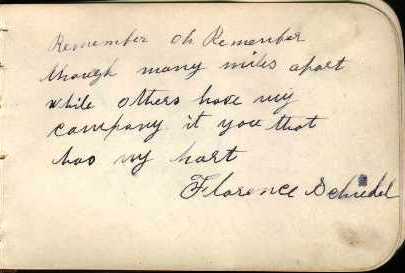 Remember Oh Remember
though many miles apart
while others have my
company it you that
has my hart
Florence Schiedel